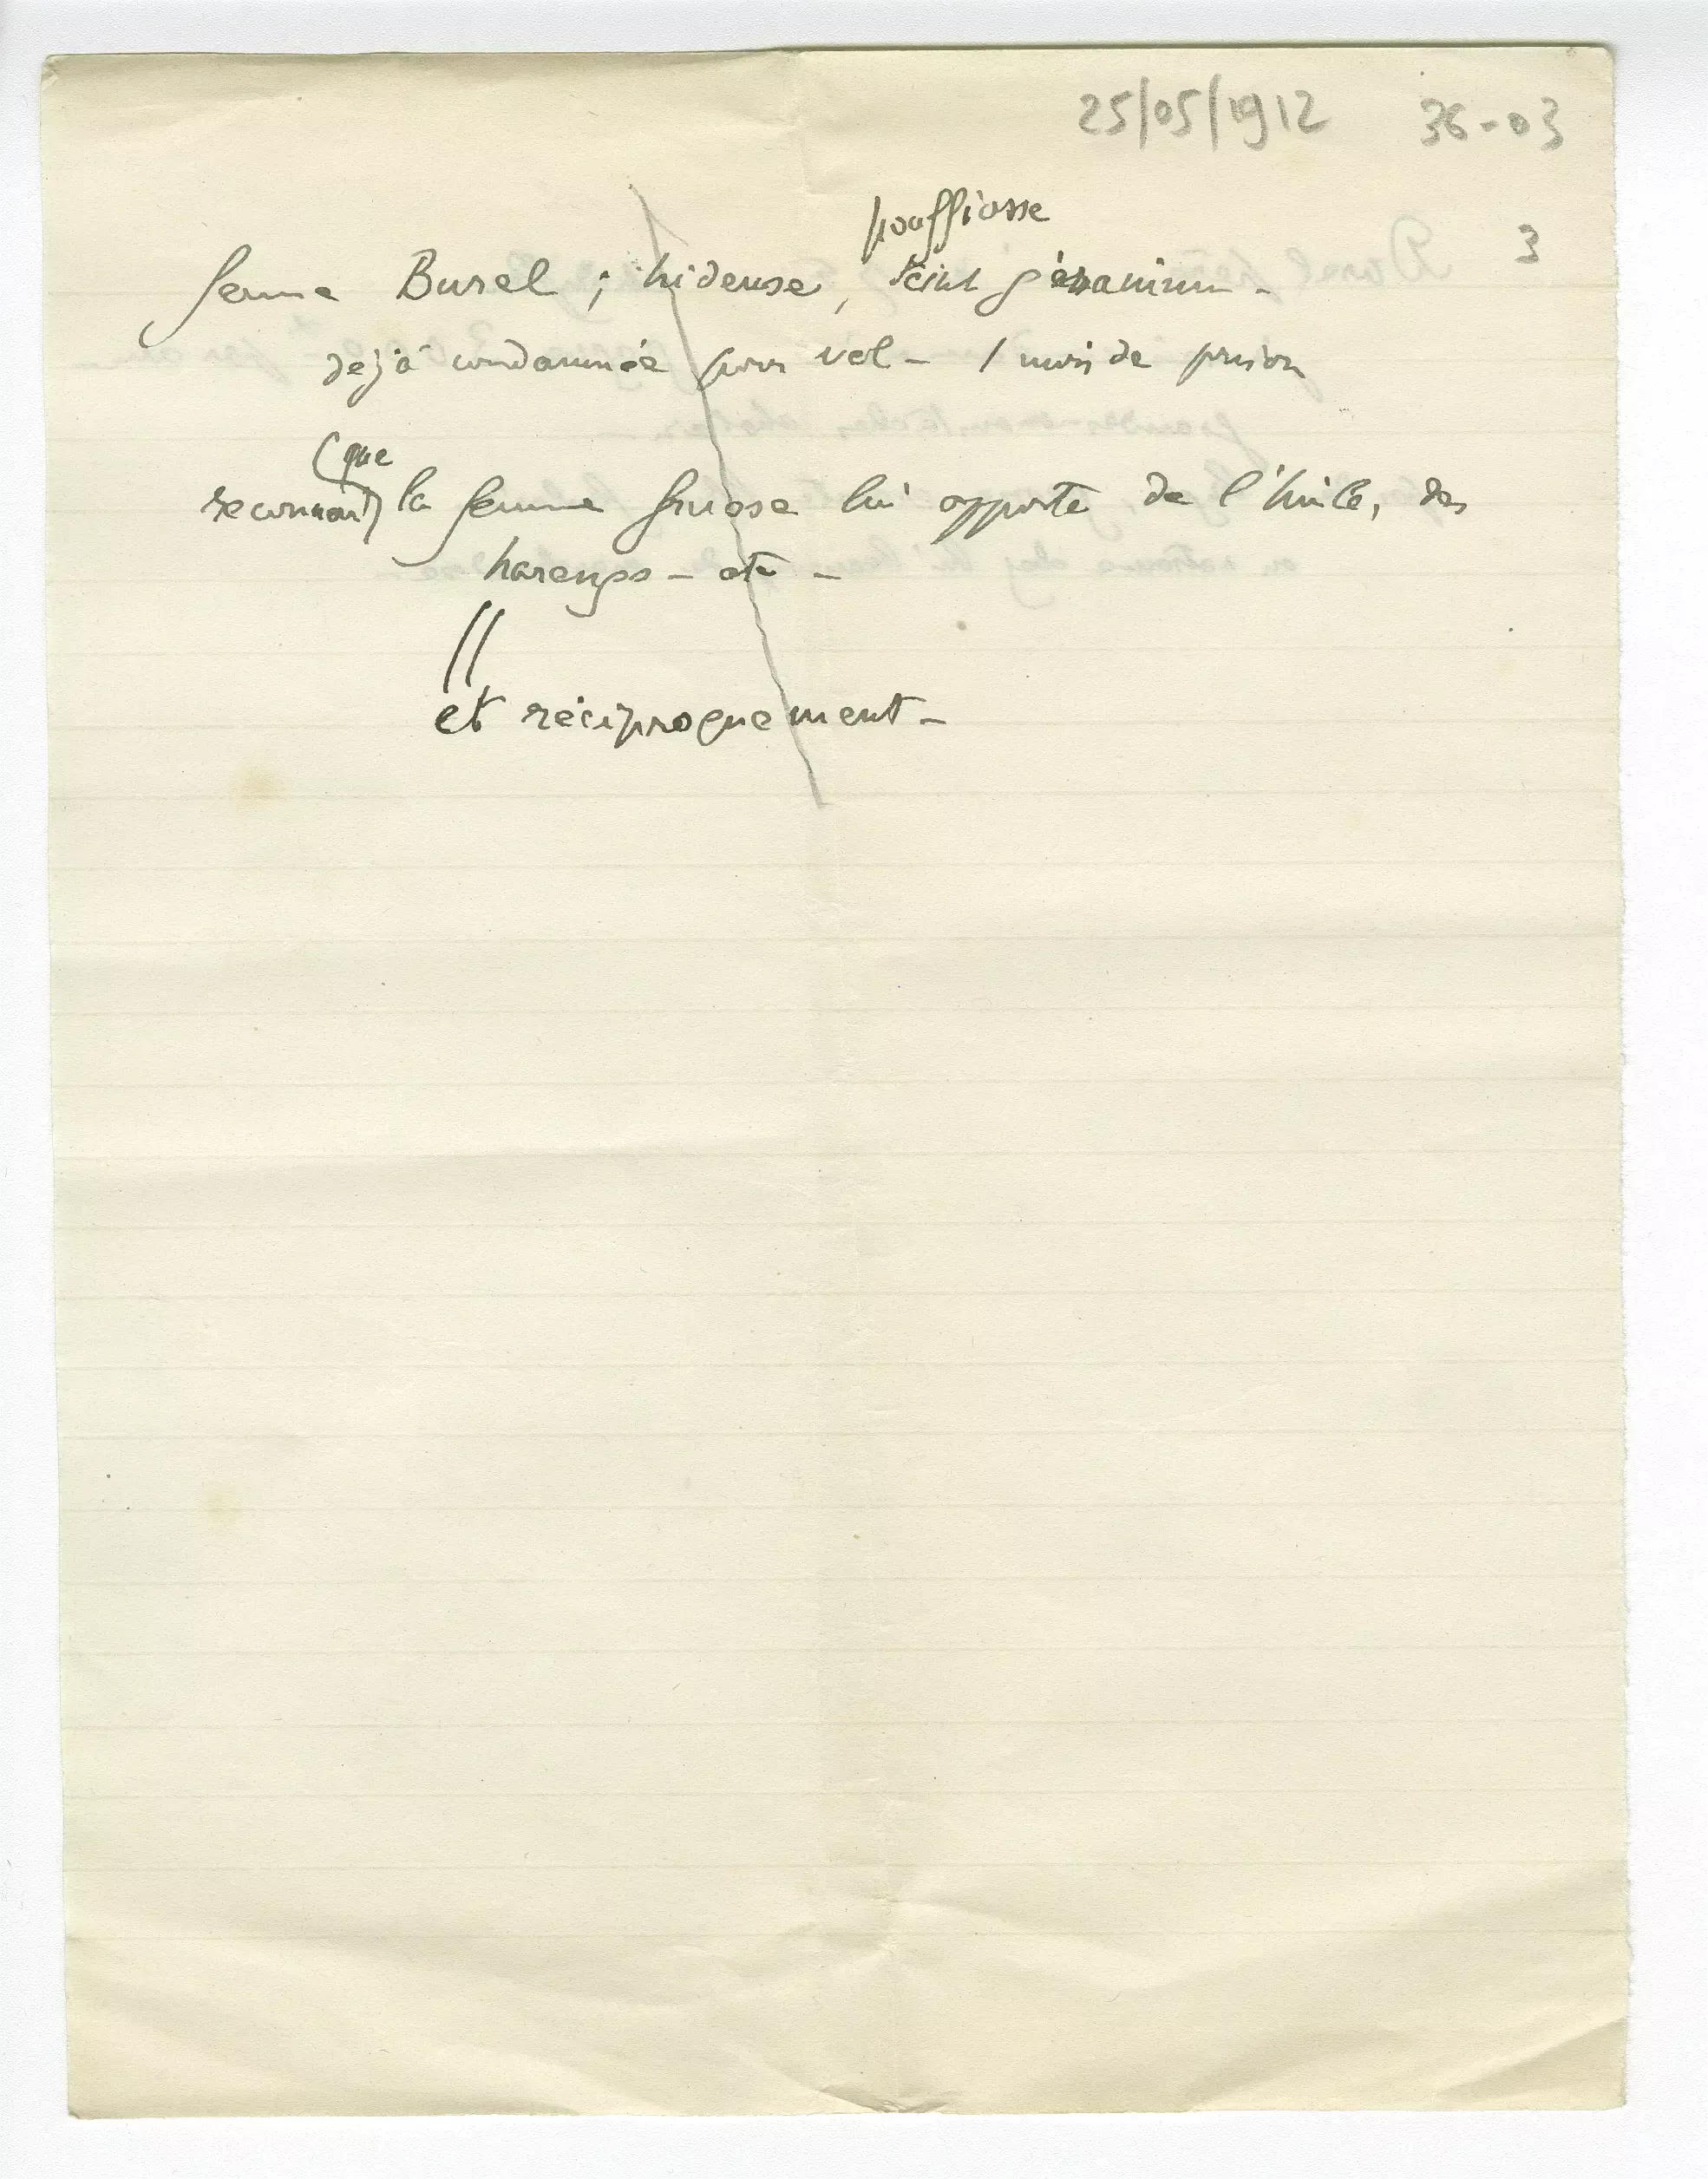 25/05/1912 36-03
3
pouffiasse
femme Burel ; hideuse, teint géranium -
déjà condamnée pour vol - 1 mois de prison
(que
reconnait) la femme lui apporte de l'huile, des
harengs - etc -
//
et réciproquement -